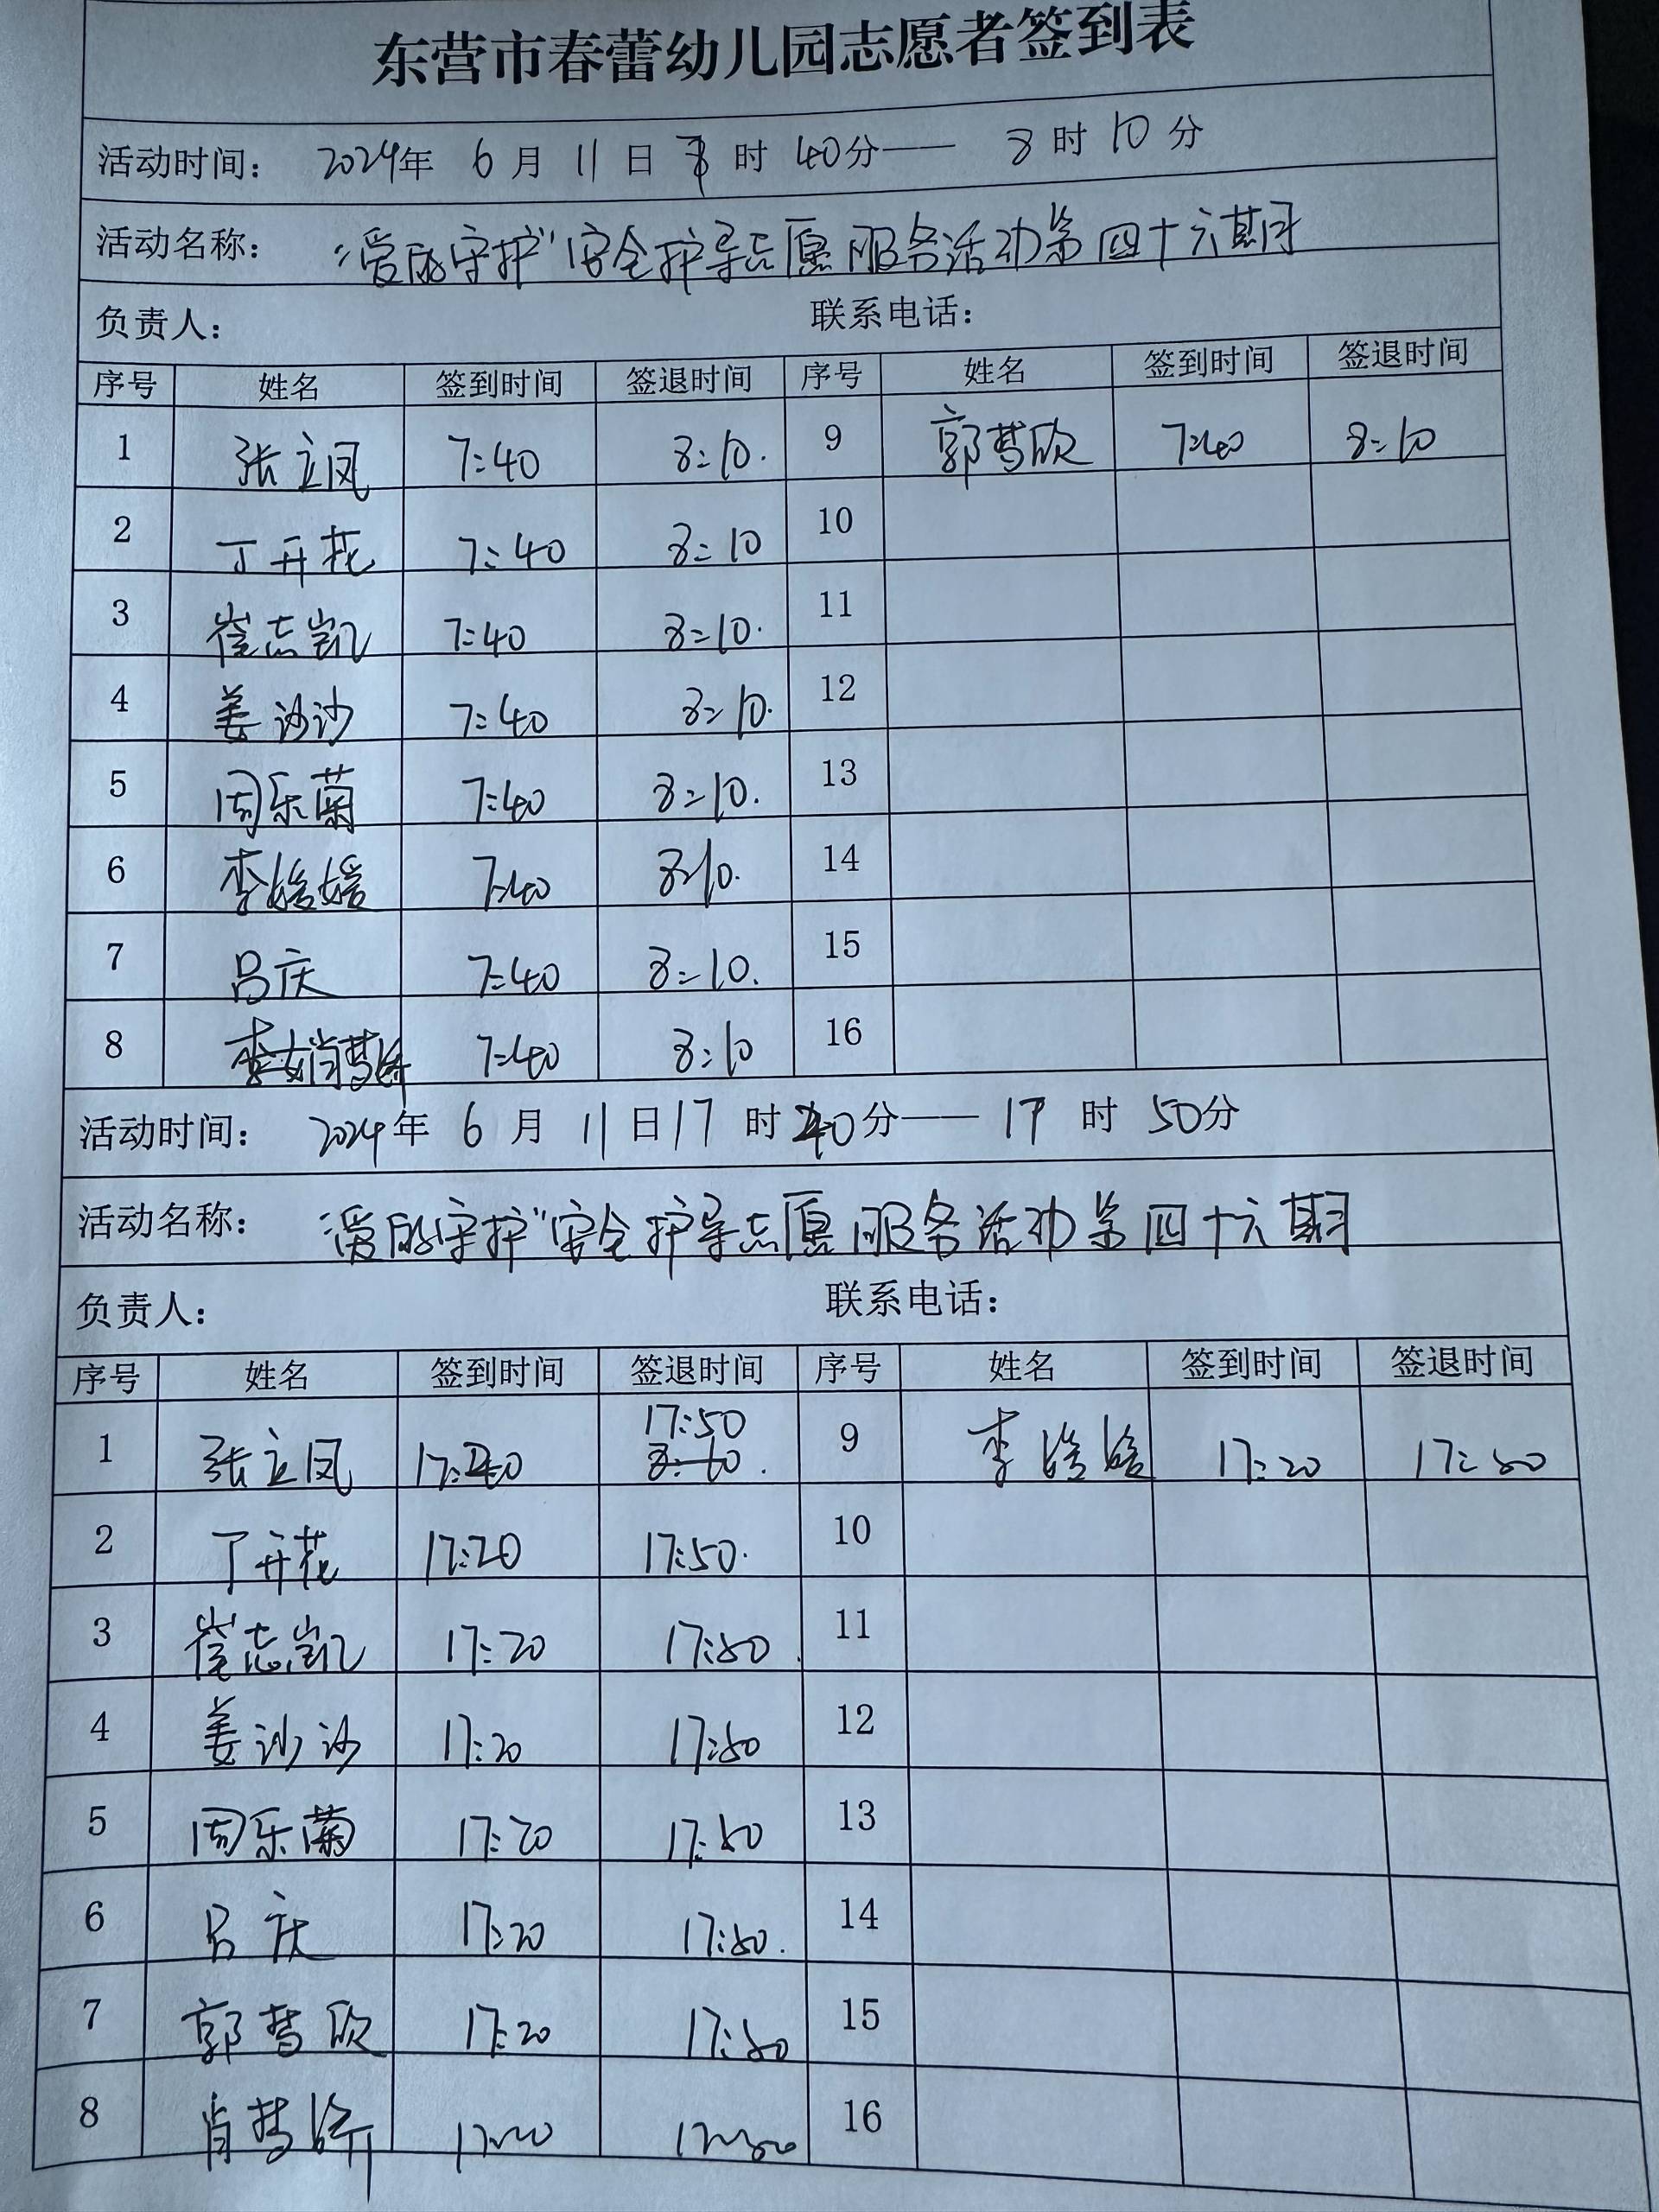 东营市春蕾幼儿园志愿者签到表
活动时间： 2024年 6 月 11 日 7 时 40分—— 8 时 10 分
活动名称： “爱的守护”安全护导志愿服务活动第四十六期
负责人： 联系电话：
序号 姓名 签到时间 签退时间 序号 姓名 签到时间 签退时间
1 张立凤 7:40 8:10. 9 郭梦欣 7:40 8:10
2 丁开花 7:40 8:10 10
3 崔志凯 7:40 8:10. 11
4 姜沙沙 7:40 8:10. 12
5 周乐菊 7:40 8:10. 13
6 李媛媛 7:40 8:10. 14
7 吕庆 7:40 8:10. 15
8 肖梦娇 7:40 8:10 16
活动时间： 2024年 6 月 11 日 17 时 20分—— 17 时 50分
活动名称： “爱的守护”安全护导志愿服务活动第四十六期
负责人： 联系电话：
序号 姓名 签到时间 签退时间 序号 姓名 签到时间 签退时间
17:50
1 张立凤 17:20 8:10. 9 李媛媛 17:20 17:50
2 丁开花 17:20 17:50. 10
3 崔志凯 17:20 17:50. 11
4 姜沙沙 17:20 17:50 12
5 周乐菊 17:20 17:50 13
6 吕庆 17:20 17:50. 14
7 郭梦欣 17:20 17:50 15
8 肖梦娇 17:20 17:50 16